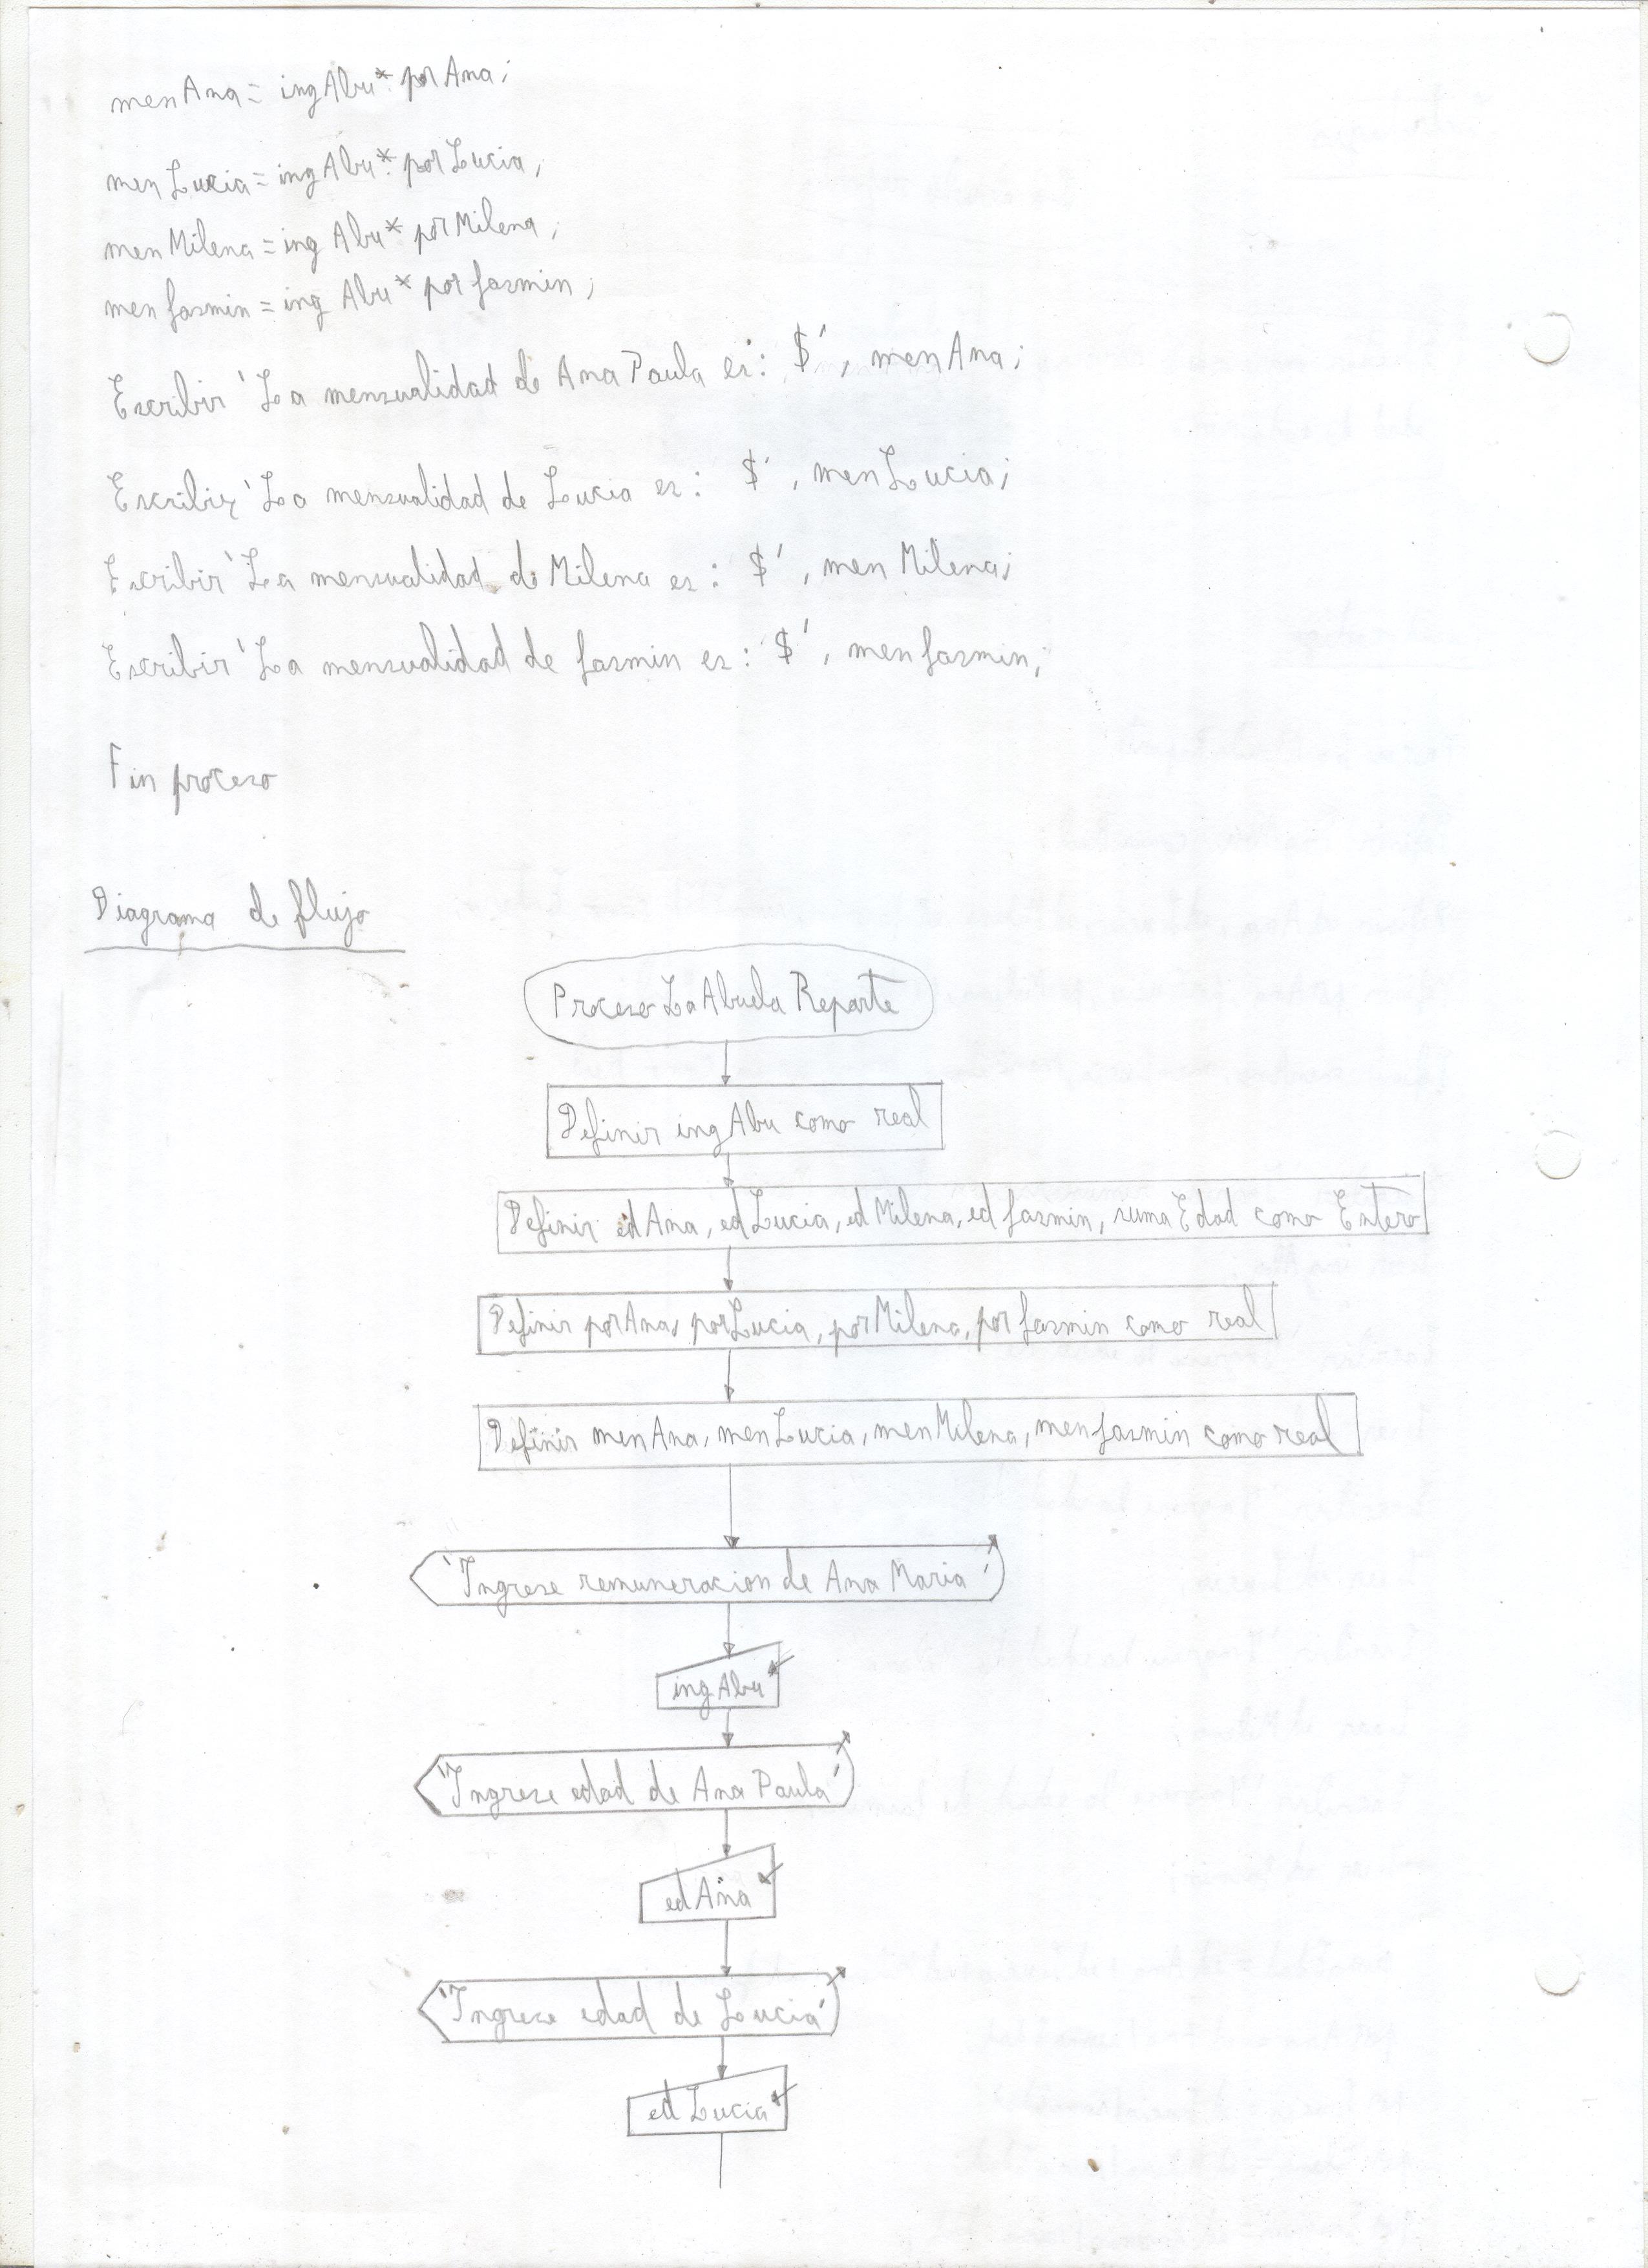 menAna = ingAbu * porAna;
menLucia = ingAbu * porLucia;
menMilena = ingAbu * porMilena;
menJasmin = ingAbu * porJasmin;
Escribir 'La mensualidad de Ana Paula es: $', menAna;
Escribir 'La mensualidad de Lucia es: $', menLucia;
Escribir 'La mensualidad de Milena es: $', menMilena;
Escribir 'La mensualidad de Jasmin es: $', menJasmin;
Fin proceso
Diagrama de flujo
Proceso LaAbuelaReparte
Definir ingAbu como real
Definir edAna, edLucia, edMilena, edJasmin, sumaEdad como Entero
Definir porAna, porLucia, porMilena, porJasmin como real
Definir menAna, menLucia, menMilena, menJasmin como real
'Ingrese remuneracion de Ana Maria'
ingAbu
'Ingrese edad de Ana Paula'
edAna
'Ingrese edad de Lucia'
edLucia